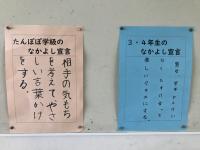 たんぽぽ学級の
なかよし宣言
相手の気もち
を考えてやさ
しい言葉かけ
をする。
3・4年生の
なかよし宣言
優しいクラスにする。